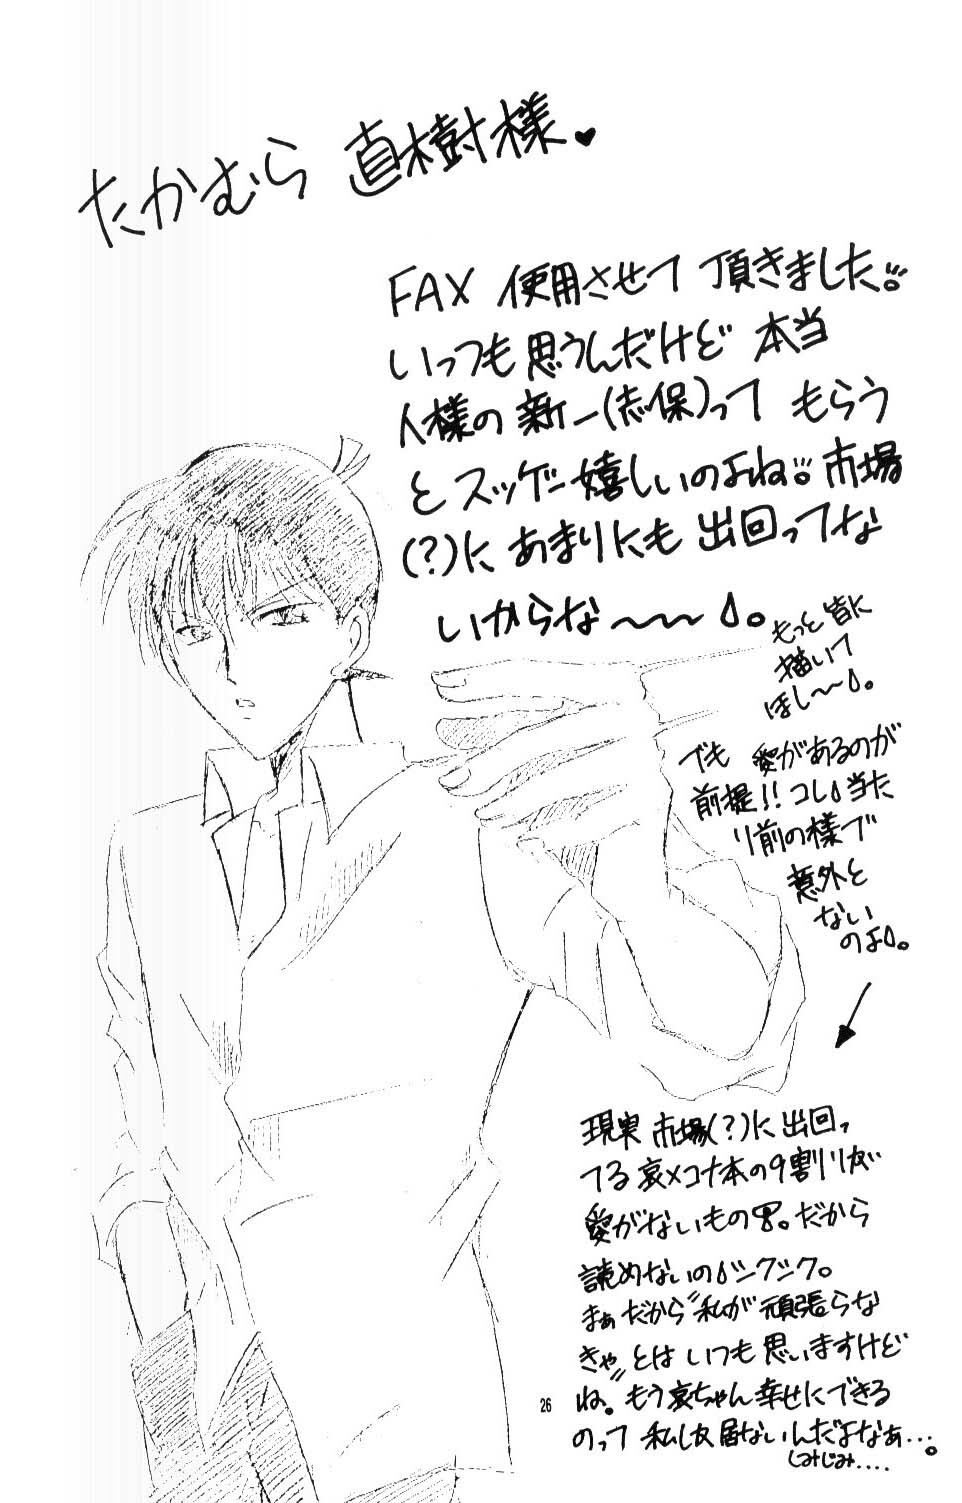 たかむら 直樹様♥
FAX 使用させて 頂きました。
いっつも思うんだけど 本当
人様の 新一(志保)って もらう
とスッゲー嬉しいのよね。市場
(?)に あまりにも 出回ってな
いからな〜〜。
もっと皆に
描いて
ほし〜〜。
でも 愛があるのが
前提!! コレ当た
り前の様で
意外と
ない
のよ。
現実 市場(?)に出回っ
てる 哀×コナ本の9割りが
愛がないもの。だから
読めないの シクシク。
まぁだから"私が 頑張らな
きゃ"とは いつも 思いますけど
ね。もう哀ちゃん 幸せにできる
のって 私しか居ないんだよなぁ…。
しみじみ....
26